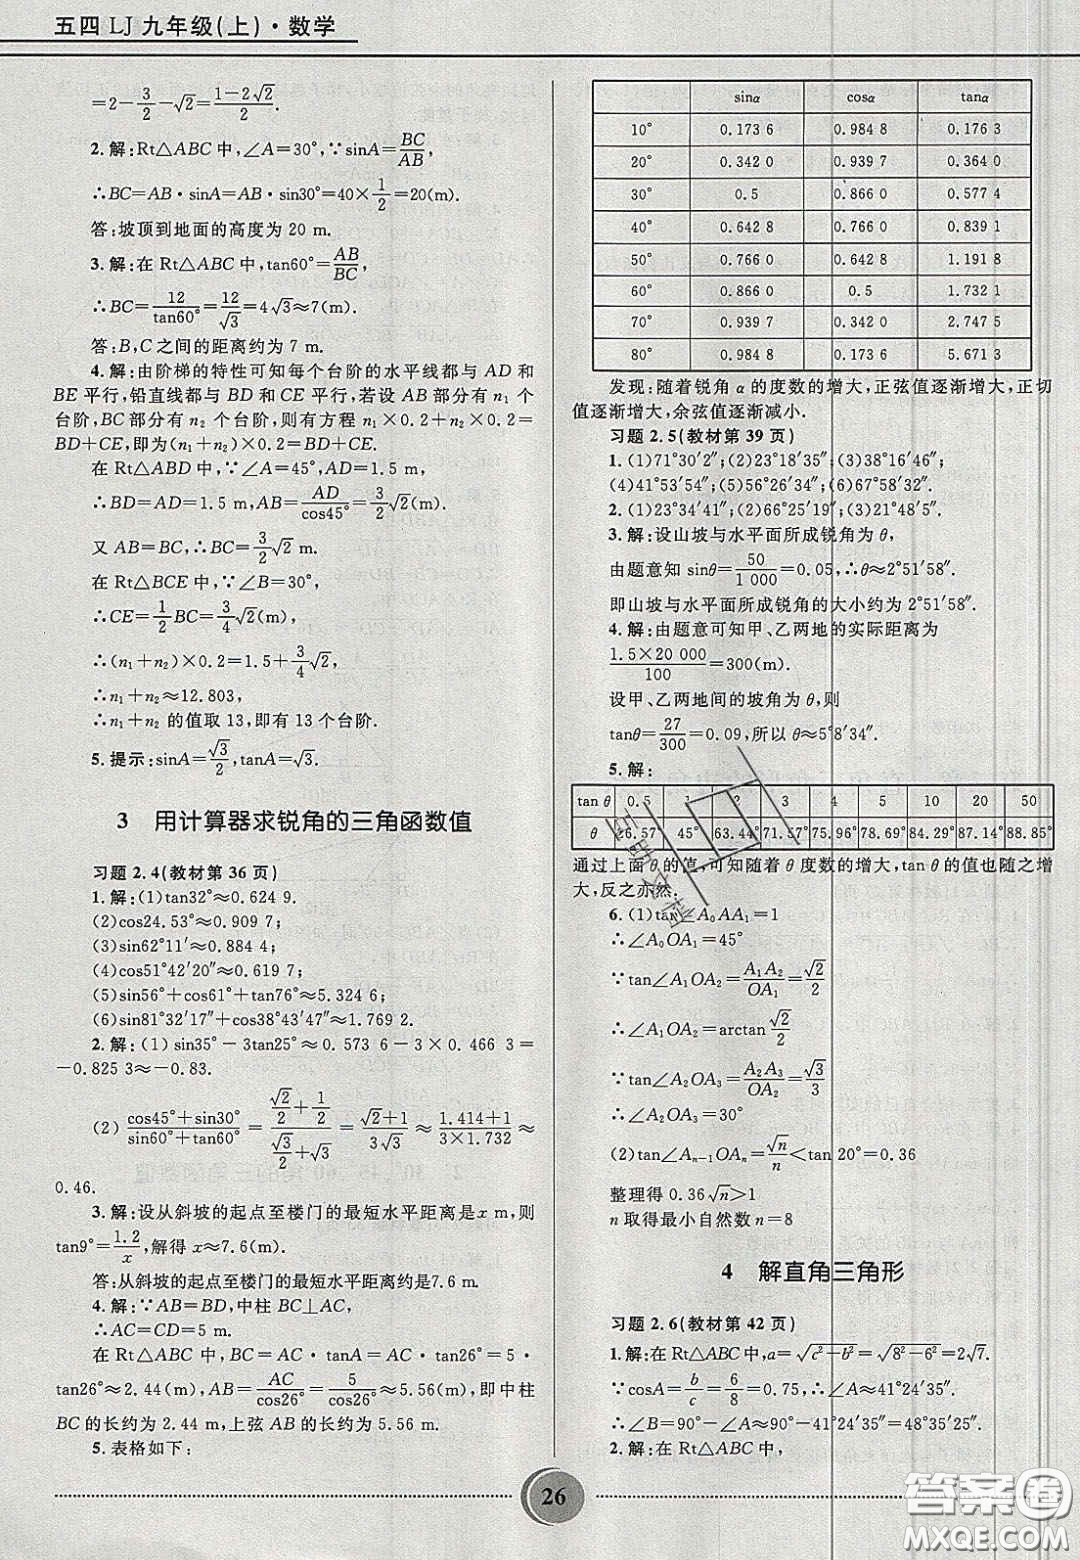 五四 LJ 九年级(上)·数学
=2-3/2-√2=(1-2√2)/2.
2.解:Rt△ABC 中,∠A=30°,∵sinA=BC/AB,
∴BC=AB·sinA=AB·sin30°=40×1/2=20(m).
答:坡顶到地面的高度为 20 m.
3.解:在 Rt△ABC 中,tan60°=AB/BC,
∴BC=12/tan60°=12/√3=4√3≈7(m).
答:B,C 之间的距离约为 7 m.
4.解:由阶梯的特性可知每个台阶的水平线都与 AD 和
BE 平行,铅直线都与 BD 和 CE 平行,若设 AB 部分有 n₁ 个
台阶,BC 部分有 n₂ 个台阶,则有方程 n₁×0.2+n₂×0.2=
BD+CE,即为(n₁+n₂)×0.2=BD+CE.
在 Rt△ABD 中,∵∠A=45°,AD=1.5 m,
∴BD=AD=1.5 m,AB=AD/cos45°=3/2√2(m).
又 AB=BC,∴BC=3/2√2 m.
在 Rt△BCE 中,∵∠B=30°,
∴CE=1/2BC=3/4√2(m).
∴(n₁+n₂)×0.2=1.5+3/4√2,
∴n₁+n₂≈12.803,
∴n₁+n₂ 的值取 13,即有 13 个台阶.
5.提示:sinA=√3/2,tanA=√3.
3 用计算器求锐角的三角函数值
习题 2.4(教材第 36 页)
1.解:(1)tan32°≈0.624 9.
(2)cos24.53°≈0.909 7;
(3)sin62°11′≈0.884 4;
(4)cos51°42′20″≈0.619 7;
(5)sin56°+cos56°+tan76°≈5.324 6;
(6)sin81°32′17″+cos38°43′47″≈1.769 2.
2.解:(1)sin35°-3tan25°≈0.573 6-3×0.466 3=
-0.825 3≈-0.83.
(2)(cos45°+sin30°)/(sin60°+tan60°)=(√2/2+1/2)/(√3/2+√3)=(√2+1)/(3√3)≈(1.414+1)/(3×1.732)≈
0.46.
3.解:设从斜坡的起点至楼门的最短水平距离是x m,则
tan9°=1.2/x,解得 x≈7.6(m).
答:从斜坡的起点至楼门的最短水平距离约是7.6 m.
4.解:∵AB=BD,中柱 BC⊥AC,
∴AC=CD=5 m.
在 Rt△ABC 中,BC=AC·tanA=AC·tan26°=5·
tan26°≈2.44(m),AB=AC/cos26°=5/cos26°≈5.56(m),即中柱
BC 的长约为 2.44 m,上弦 AB 的长约为 5.56 m.
5.表格如下:
sinα cosα tanα
10° 0.173 6 0.984 8 0.176 3
20° 0.342 0 0.939 7 0.364 0
30° 0.5 0.866 0 0.577 4
40° 0.642 8 0.766 0 0.839 1
50° 0.766 0 0.642 8 1.191 8
60° 0.866 0 0.5 1.732 1
70° 0.939 7 0.342 0 2.747 5
80° 0.984 8 0.173 6 5.671 3
发现:随着锐角 α 的度数的增大,正弦值逐渐增大,正切
值逐渐增大,余弦值逐渐减小.
习题 2.5(教材第 39 页)
1.(1)71°30′2″;(2)23°18′35″;(3)38°16′46″;
(4)41°53′54″;(5)56°26′34″;(6)67°58′32″.
2.(1)23°34′41″;(2)66°25′19″;(3)21°48′5″.
3.解:设山坡与水平面所成锐角为 θ,
由题意知 sinθ=50/1 000=0.05,∴θ≈2°51′58″.
即山坡与水平面所成锐角的大小约为 2°51′58″.
4.解:由题意可知甲、乙两地的实际距离为
(1.5×20 000)/100=300(m).
设甲、乙两地间的坡角为 θ,则
tanθ=27/300=0.09,所以 θ≈5°8′34″.
5.解:
tan θ 0.5 1 2 3 4 5 10 20 50
θ 26.57° 45° 63.44° 71.57° 75.96° 78.69° 84.29° 87.14° 88.85°
通过上面 θ 的值,可知随着 θ 度数的增大,tan θ 的值也随之增
大,反之亦然.
6.(1)tan∠A₀AA₁=1
∴∠A₀OA₁=45°
∵tan∠A₁OA₂=A₁A₂/OA₁=√2/2
∴∠A₁OA₂=arctan√2/2
∵tan∠A₂OA₃=A₂A₃/OA₂=√3/3
∴∠A₂OA₃=30°
(2)tan∠Aₙ₋₁OAₙ=√n/n<tan 20°=0.36
整理得 0.36√n>1
n 取得最小自然数 n=8
4 解直角三角形
习题 2.6(教材第 42 页)
1.解:在 Rt△ABC 中,a=√(c²-b²)=√(8²-6²)=2√7.
∵cosA=b/c=6/8=0.75,∴∠A≈41°24′35″,
∴∠B=90°-∠A≈90°-41°24′35″=48°35′25″.
2.解:在 Rt△ABC 中,
26
答案圈
MXQE.COM